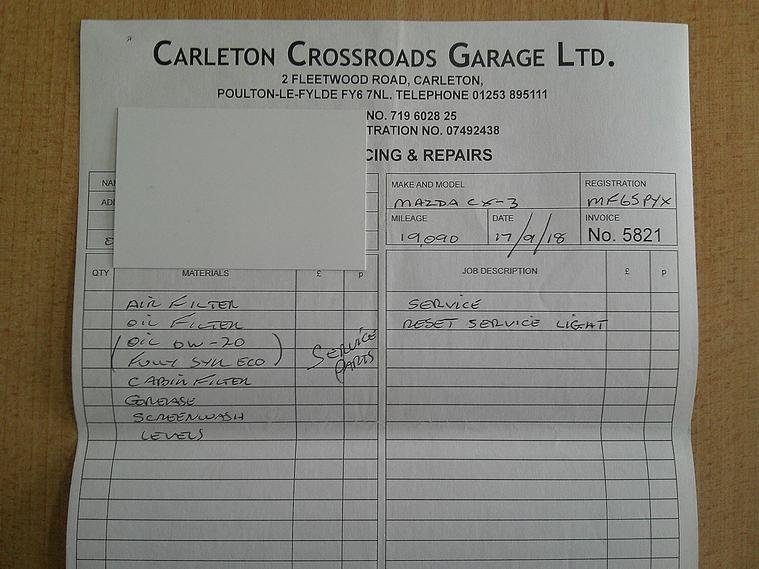 CARLETON CROSSROADS GARAGE LTD.
2 FLEETWOOD ROAD, CARLETON,
POULTON-LE-FYLDE FY6 7NL. TELEPHONE 01253 895111
NO. 719 6028 25
TRATION NO. 07492438
CING & REPAIRS
NA
MAKE AND MODEL
REGISTRATION
MAZDA CX-3
MF65PYX
AD
MILEAGE
DATE
INVOICE
19,090
17/9/18
No. 5821
QTY
MATERIALS
£
p
JOB DESCRIPTION
£
p
AIR FILTER
SERVICE
OIL FILTER
RESET SERVICE LIGHT
OIL 0W-20
(FULLY SYN ECO)
SERVICE
PARTS
CABIN FILTER
GREASE
SCREENWASH
LEVELS